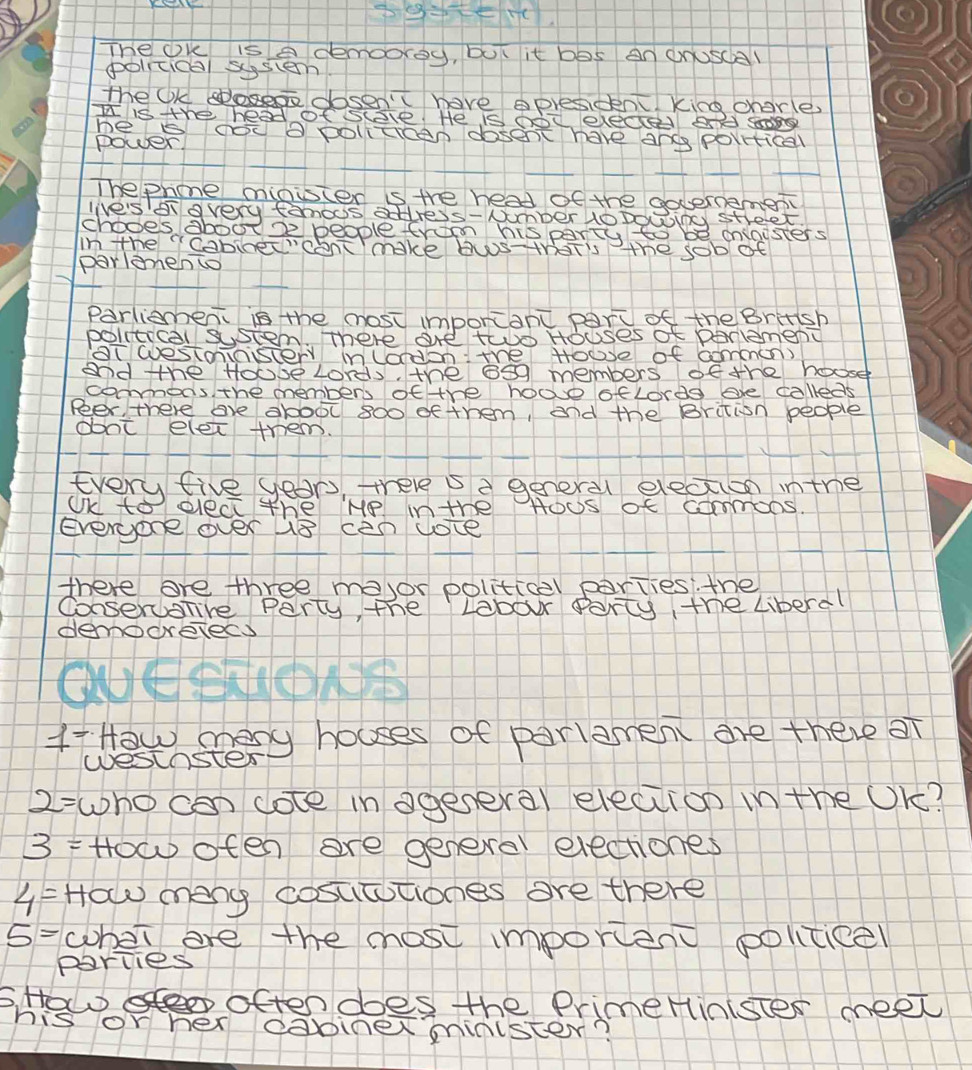 System
The UK is a demooray, but it bas an unuscal
political system.
the UK dosen't have a president. King charles
It is the head of state. He is not elected and
he is not a politician dosent have any political
power.
The prime minister is the head of the governament
lives at a very famous address - Number 10 Downing street
chooes about 22 people from his party to be ministers
in the "Cabinet" can't make laws - that's the job of
parlamento
Parliament is the most important part of the British
political system. There are two Houses of parlament
at Westminister in London: the House of commons
and the House Lords. the 659 members of the house
commons. the members of the house of Lords are calleds
Peer, there are aboot 800 of them, and the British people
dont elet them.
Every five years, there is a general election in the
UK to elect the MP in the Hous of commons.
Everyone over 18 can vote
there are three major political parties: the
Conservative Party, the Labour Party, the Liberal
demooratecs
QUESTIONS
1= Haw many houses of parlament are there at
westnster
2= who can vote in a general election in the UK?
3= How often are general electiones
4= How many costitutiones are there
5= what are the most important political
parties
How often does the Prime Minister meet
his or her cabinet minister?